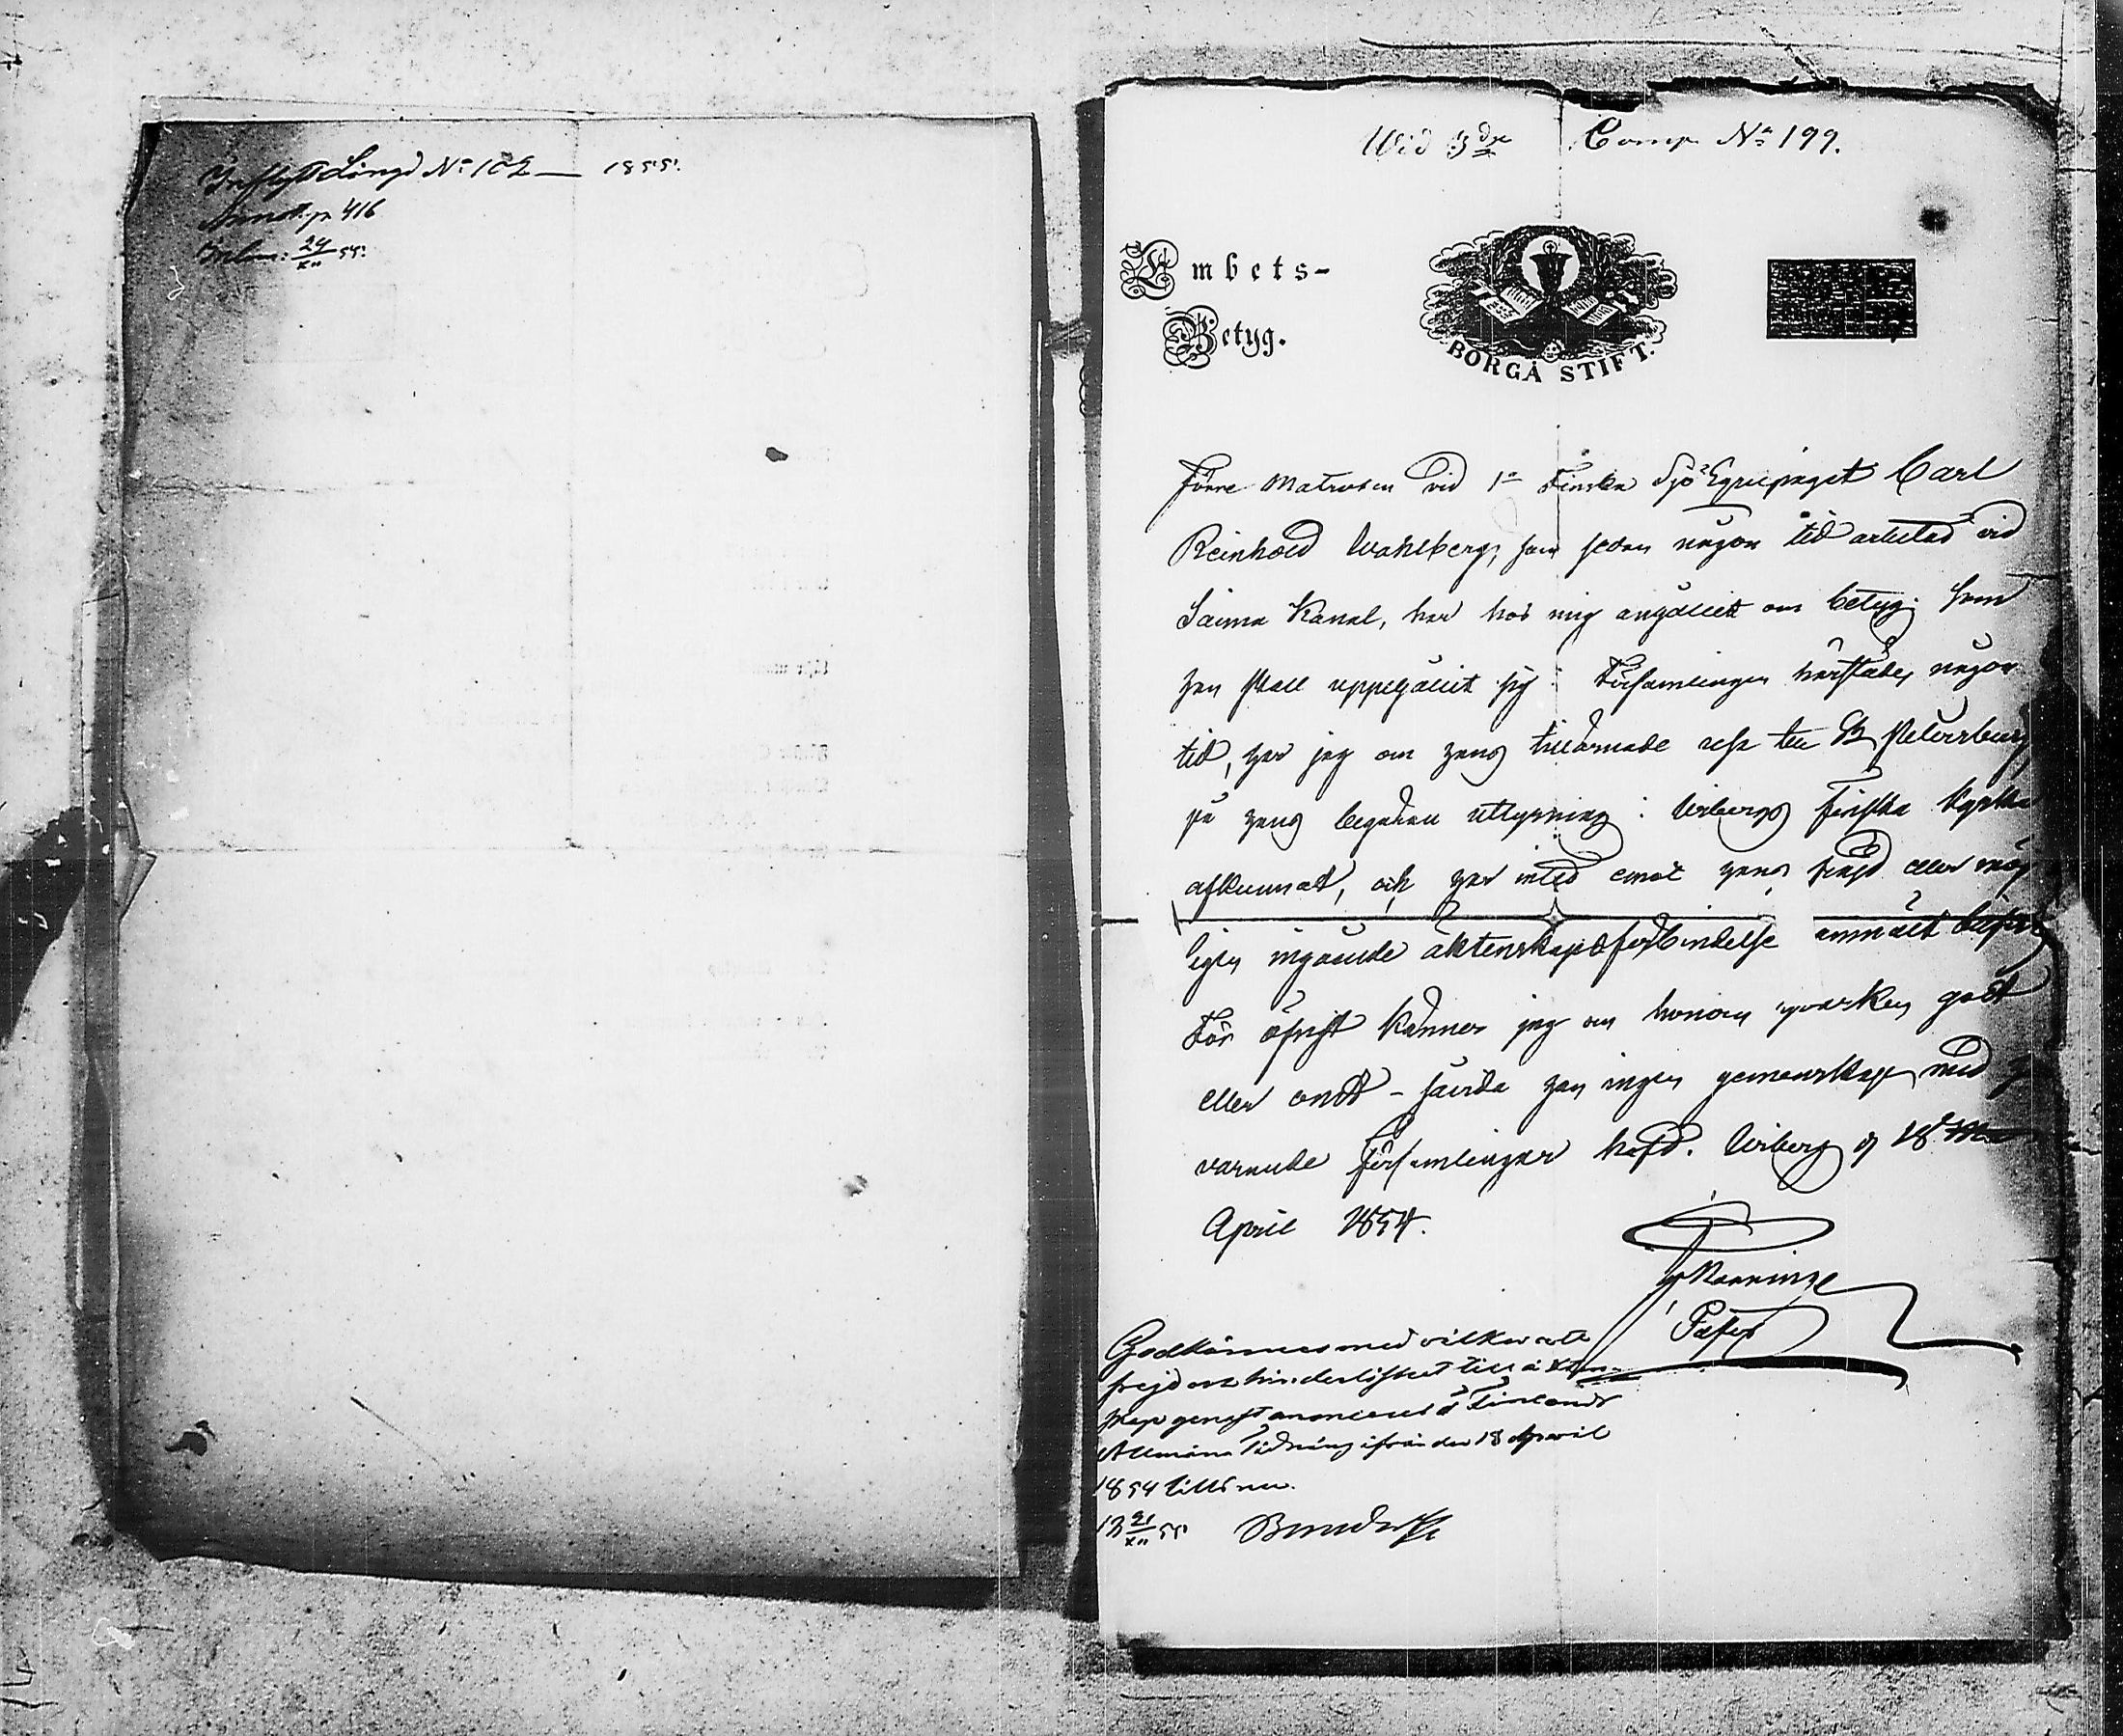 Inflytt Längd No 102 — 1855.
Annot. p 416
Inlem: 24/XII 55.
Wid 3dje Comp No 199.
Embets-
Betyg.
BORGÅ STIFT.
Förre Matrosen vid 1a Finska Sjö Equipaget Carl
Reinhold Wahlberg, som sedan någon tid arbetad vid
Saima Kanal, har hos mig anhållit om betyg. Som
han skall uppehållit sig i Församlingen härstädes någon
tid, har jag om hans tillärnade resa till St Petersburg
på hans begäran utlysning i Wiborgs Finska Kyrka
afkunnat, och har intet emot hans frejd eller möj
ligen ingående äktenskapsförbindelse anmält blifvit
För öfrigt känner jag om honom hvarken godt
eller ondt - havande han ingen gemenskap med
varande församlingar hafd. Wiborg d 18
April 1854.
Godkännes med vilkor att
frejd och hinderlöshet till äkten-
skap genast annonceras i Finlands
Allmänna Tidning ifrån den 18 April
1854 till denna.
21/XII 55